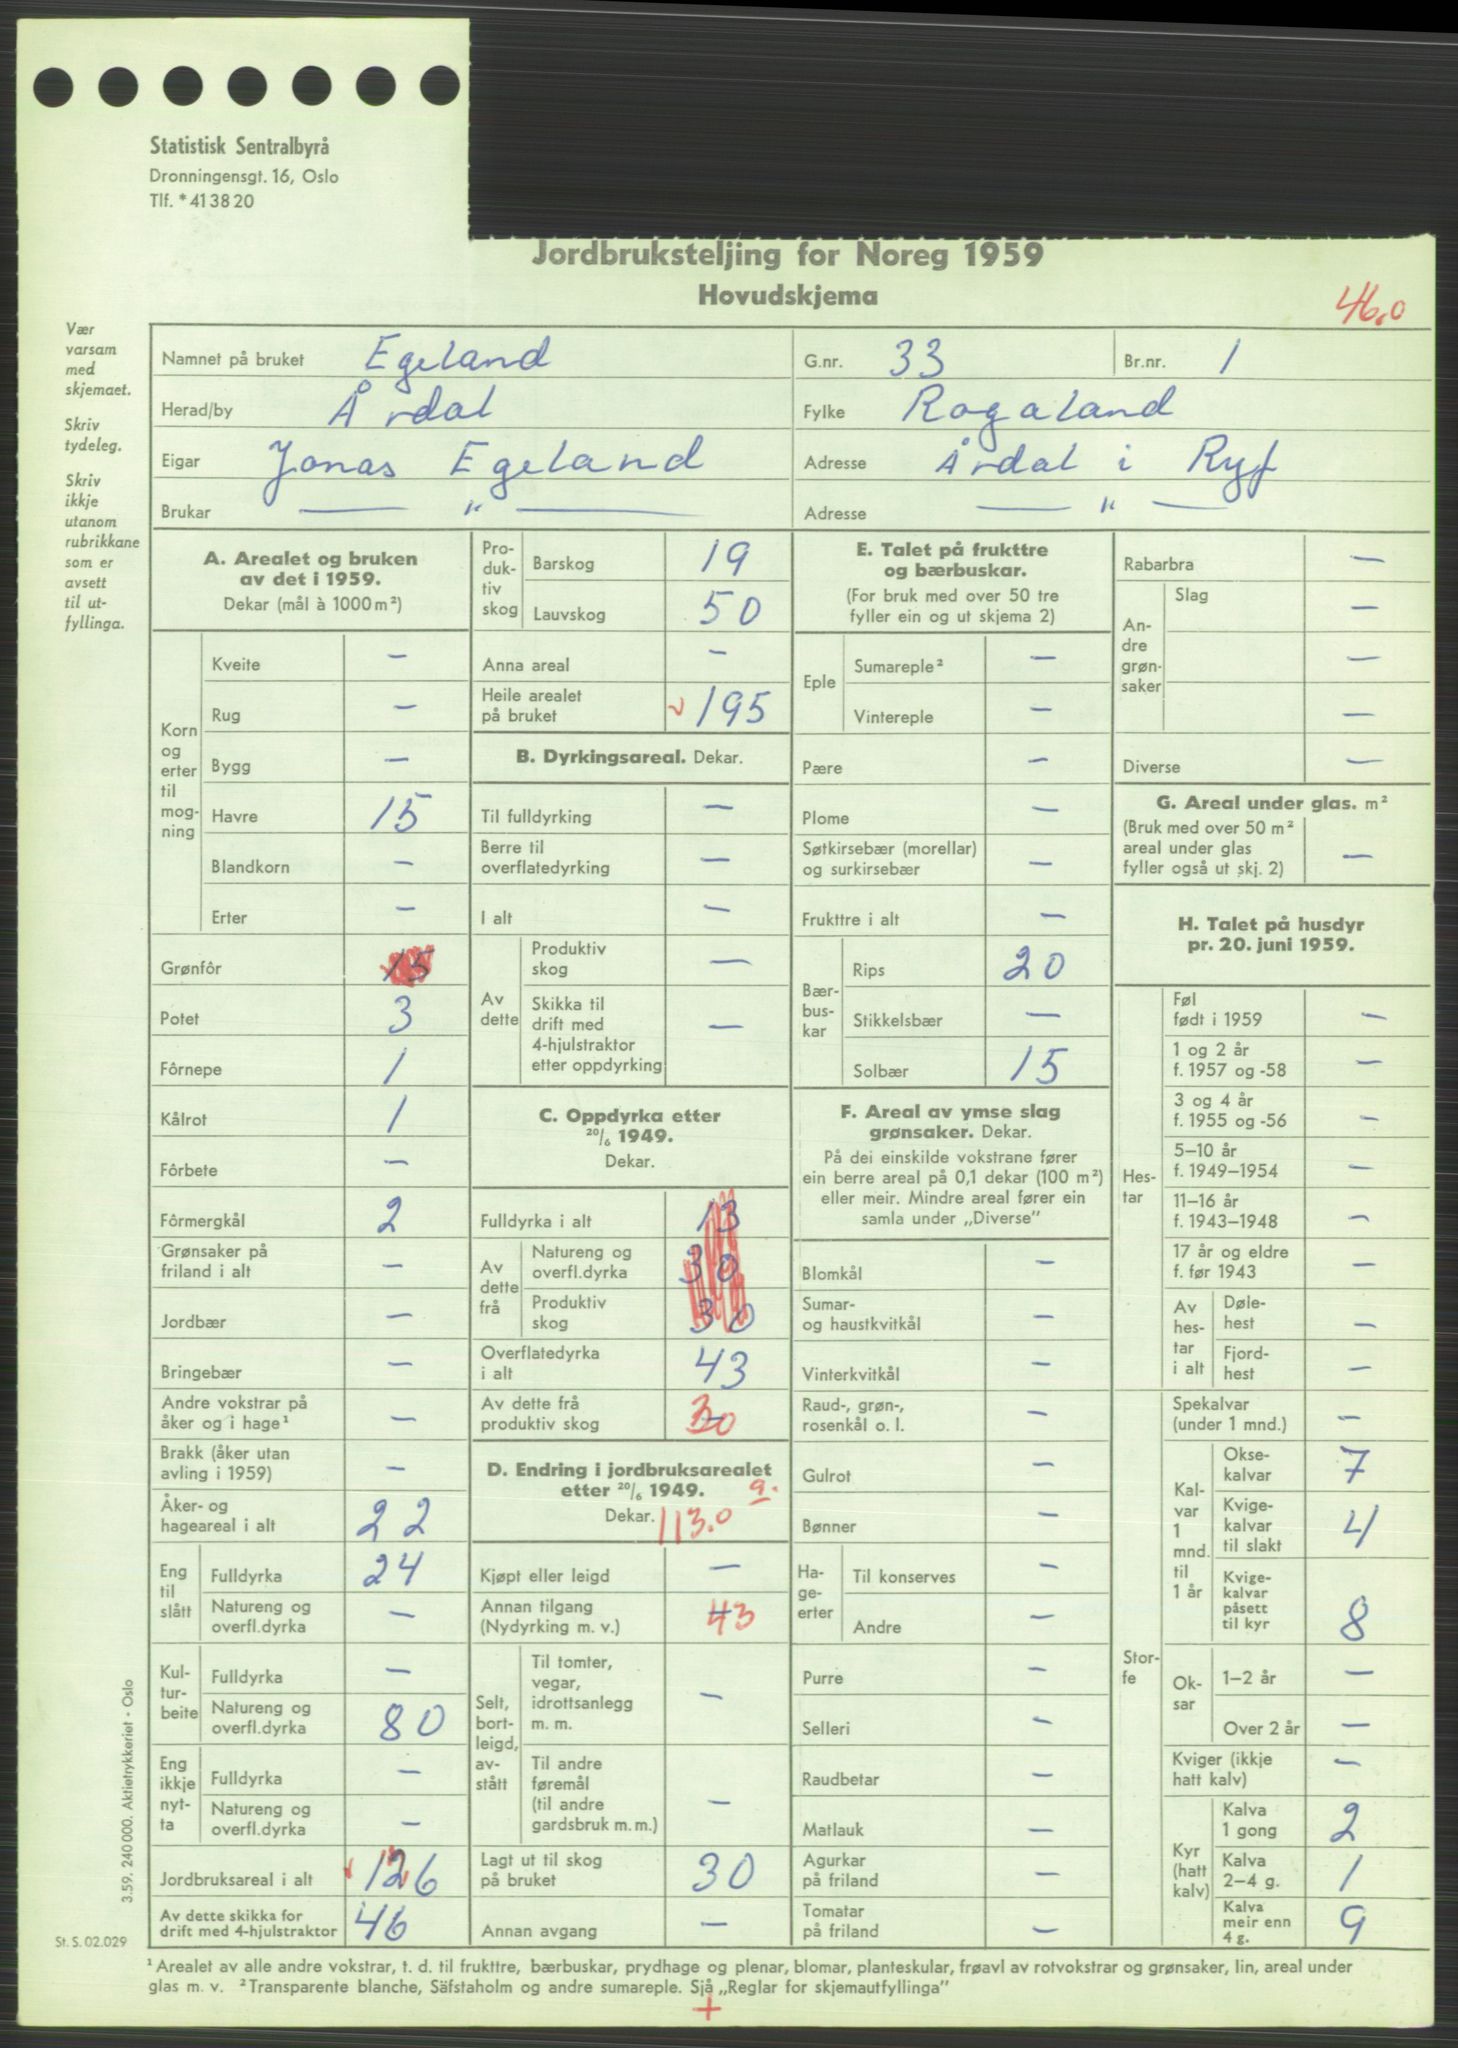 Statistisk Sentralbyrå
Dronningensgt. 16, Oslo
Tlf. * 41 38 20
Jordbruksteljing for Noreg 1959
Hovudskjema
46.0
Vær
varsam
med
skjemaet.
Skriv
tydeleg.
Skriv
ikkje
utanom
rubrikkane
som er
avsett
til ut-
fyllinga.
Namnet på bruket Egeland G.nr. 33 Br.nr. 1
Herad/by Årdal Fylke Rogaland
Eigar Jonas Egeland Adresse Årdal i Ryf
Brukar — " — Adresse — " —
A. Arealet og bruken
av det i 1959.
Dekar (mål à 1000 m²)
Korn
og
erter
til
mog-
ning
Kveite –
Rug –
Bygg –
Havre 15
Blandkorn –
Erter –
Grønfôr 15
Potet 3
Fôrnepe 1
Kålrot 1
Fôrbete –
Fôrmergkål 2
Grønsaker på
friland i alt –
Jordbær –
Bringebær –
Andre vokstrar på
åker og i hage¹ –
Brakk (åker utan
avling i 1959) –
Åker- og
hageareal i alt 22
Eng
til
slått
Fulldyrka 24
Natureng og
overfl.dyrka –
Kul-
tur-
beite
Fulldyrka –
Natureng og
overfl.dyrka 80
Eng
ikkje
nyt-
ta
Fulldyrka –
Natureng og
overfl.dyrka –
Jordbruksareal i alt 126
Av dette skikka for
drift med 4-hjulstraktor 46
Pro-
duk-
tiv
skog
Barskog 19
Lauvskog 50
Anna areal –
Heile arealet
på bruket 195
B. Dyrkingsareal. Dekar.
Til fulldyrking –
Berre til
overflatedyrking –
I alt –
Av
dette
Produktiv
skog –
Skikka til
drift med
4-hjulstraktor
etter oppdyrking –
C. Oppdyrka etter
20/6 1949.
Dekar.
Fulldyrka i alt 13
Av
dette
frå
Natureng og
overfl.dyrka 30
Produktiv
skog 30
Overflatedyrka
i alt 43
Av dette frå
produktiv skog 30
D. Endring i jordbruksarealet
etter 20/6 1949. 9.
Dekar. 113.0
Kjøpt eller leigd –
Annan tilgang
(Nydyrking m. v.) 43
Selt,
bort-
leigd,
av-
stått
Til tomter,
vegar,
idrottsanlegg
m. m. –
Til andre
føremål
(til andre
gardsbruk m. m.) –
Lagt ut til skog
på bruket 30
Annan avgang –
E. Talet på frukttre
og bærbuskar.
(For bruk med over 50 tre
fyller ein og ut skjema 2)
Eple
Sumareple² –
Vintereple –
Pære –
Plome –
Søtkirsebær (morellar)
og surkirsebær –
Frukttre i alt –
Bær-
bus-
kar
Rips 20
Stikkelsbær –
Solbær 15
F. Areal av ymse slag
grønsaker. Dekar.
På dei einskilde vokstrane fører
ein berre areal på 0,1 dekar (100 m²)
eller meir. Mindre areal fører ein
samla under „Diverse”
Blomkål –
Sumar-
og haustkvitkål –
Vinterkvitkål –
Raud-, grøn-,
rosenkål o. l. –
Gulrot –
Bønner –
Ha-
ge-
erter
Til konserves –
Andre –
Purre –
Selleri –
Raudbetar –
Matlauk –
Agurkar
på friland –
Tomatar
på friland –
Rabarbra –
An-
dre
grøn-
saker
Slag –
–
–
Diverse –
G. Areal under glas. m²
(Bruk med over 50 m²
areal under glas
fyller også ut skj. 2) –
H. Talet på husdyr
pr. 20. juni 1959.
Hes-
tar
Føl
født i 1959 –
1 og 2 år
f. 1957 og -58 –
3 og 4 år
f. 1955 og -56 –
5–10 år
f. 1949–1954 –
11–16 år
f. 1943–1948 –
17 år og eldre
f. før 1943 –
Av
hes-
tar
i alt
Døle-
hest –
Fjord-
hest –
Stor-
fe
Spekalvar
(under 1 mnd.) –
Kal-
var
1
mnd.
til
1 år
Okse-
kalvar 7
Kvige-
kalvar
til slakt 4
Kvige-
kalvar
påsett
til kyr 8
Ok-
sar
1–2 år –
Over 2 år –
Kviger (ikkje
hatt kalv) –
Kyr
(hatt
kalv)
Kalva
1 gong 2
Kalva
2–4 g. 1
Kalva
meir enn
4 g. 9
3.59. 240 000. Aktietrykkeriet - Oslo
St. S. 02.029
¹ Arealet av alle andre vokstrar, t. d. til frukttre, bærbuskar, prydhage og plenar, blomar, planteskular, frøavl av rotvokstrar og grønsaker, lin, areal under
glas m. v. ² Transparente blanche, Säfstaholm og andre sumareple. Sjå „Reglar for skjemautfyllinga”
+